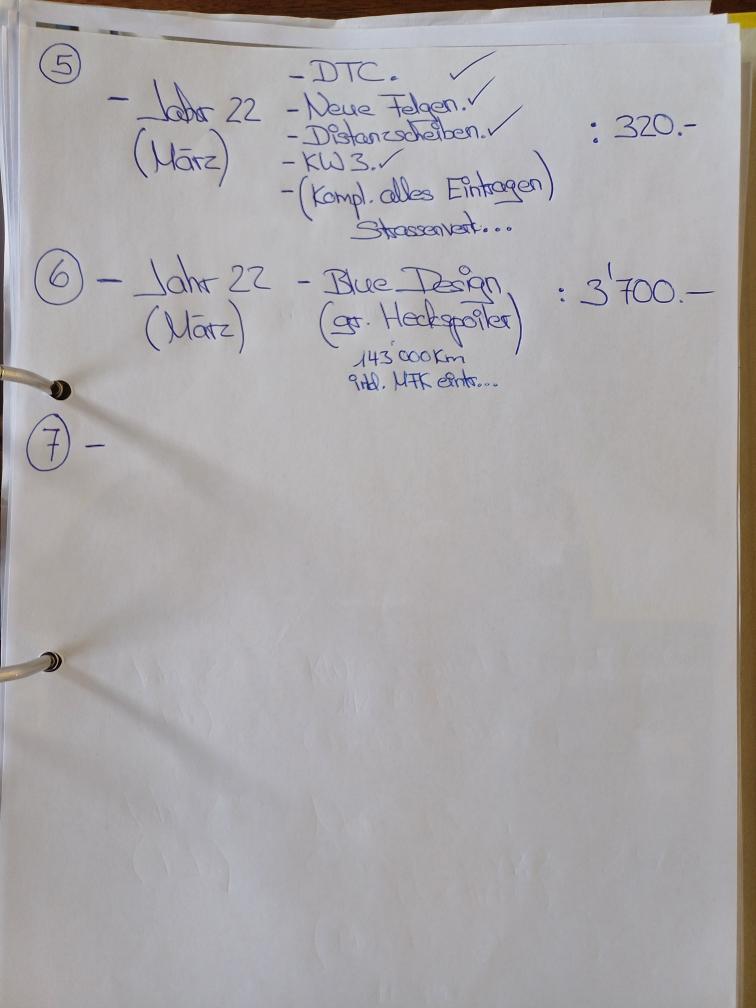 ⑤ - DTC. ✓
- Jahr 22 - Neue Felgen. ✓ : 320.-
(März) - Distanzscheiben. ✓
- KW 3. ✓
- (Kompl. alles Eintragen)
Strassenverk...
⑥ - Jahr 22 - Blue Design : 3'700.-
(März) (gr. Heckspoiler)
143'000Km
inkl. MFK eintr...
⑦ -